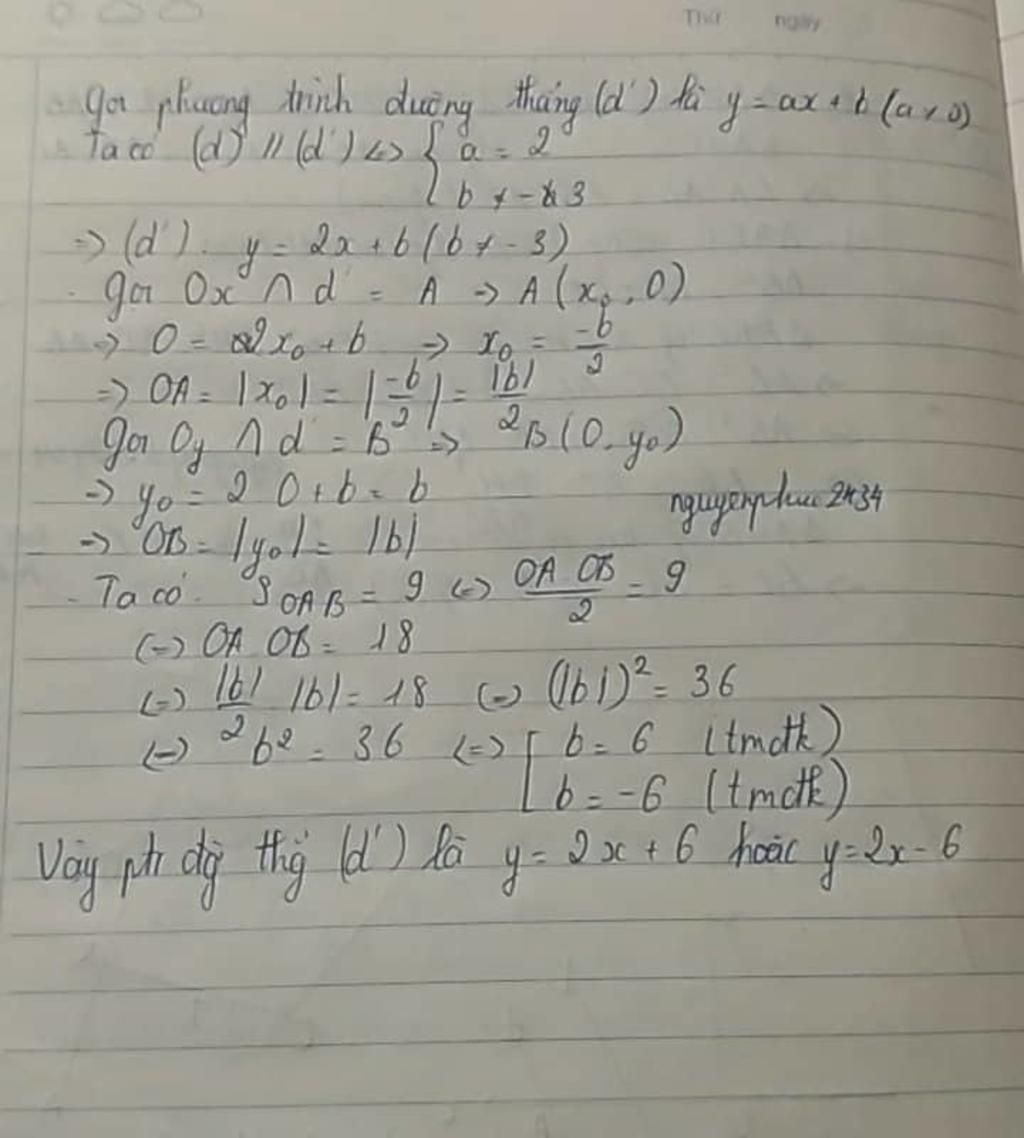 Thứ ngày
Gọi phương trình đường thẳng (d') là y = ax + b (a ≠ 0)
Ta có (d) // (d') <=> { a = 2
b ≠ -3
=> (d'). y = 2x + b (b ≠ -3)
- Gọi Ox ∩ d' = A -> A(x₀, 0)
=> 0 = 2x₀ + b -> x₀ = -b/2
=> OA = |x₀| = |-b/2| = |b|/2
Gọi Oy ∩ d' = B => B(0, y₀)
=> y₀ = 2 0 + b = b
nguyenphuc2434
=> OB = |y₀| = |b|
- Ta có. S OAB = 9 <=> OA OB/2 = 9
<=> OA OB = 18
<=> |b|/2 |b| = 18 <=> (|b|)² = 36
<=> b² = 36 <=> [ b = 6 (tmđk)
b = -6 (tmđk)
Vậy ptr đg thg (d') là y = 2x + 6 hoặc y = 2x - 6